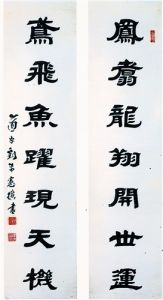 鳳翥龍翔開世運
鳶飛魚躍現天機